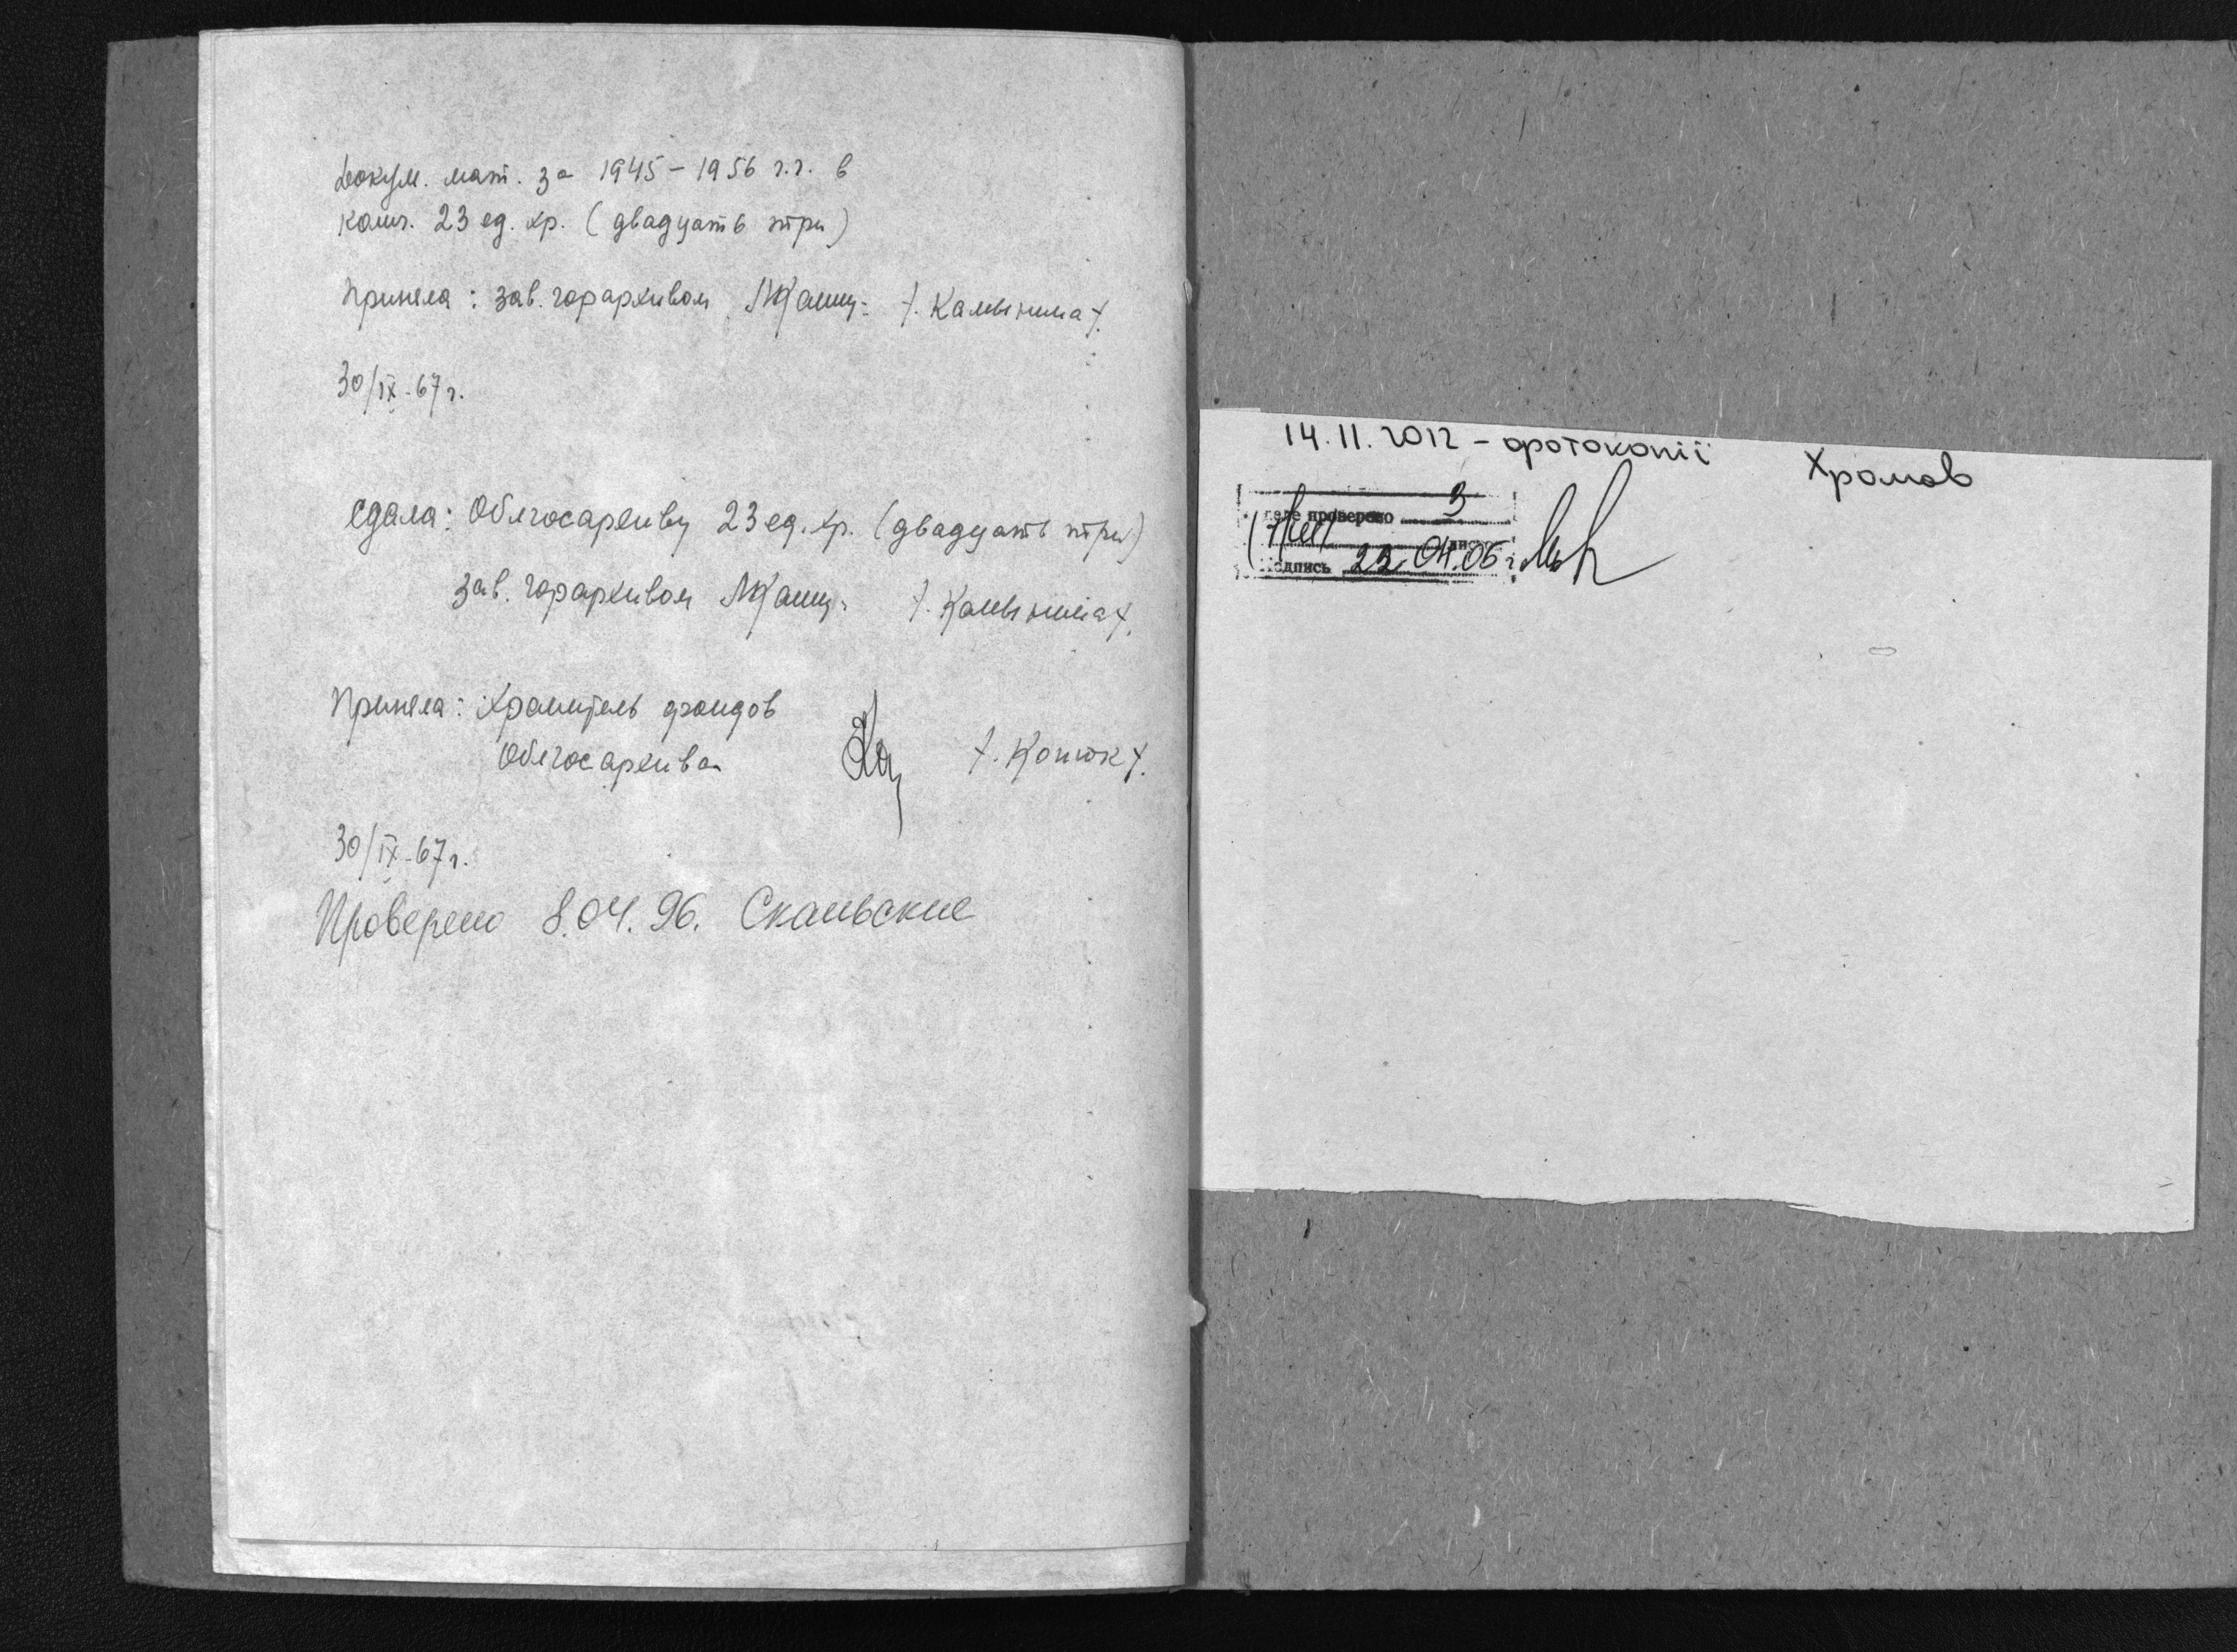 Докум. мат. за 1945-1956 г.г. в
колич. 23 ед. хр. (двадцать три)
Приняла: зав. горархивом /.Калынина/.
30/IX-67г.
Сдала: Облгосархиву 23 ед. хр. (двадцать три)
зав. горархивом /.Калынина/.
Приняла: Хранитель фондов
Облгосархива /.Конюк/.
30/IX-67г.
Проверено 8.04.96.
14.11.2012 - фотокопії Храмов
деле проверено 3
подпись 22.04.05 г.